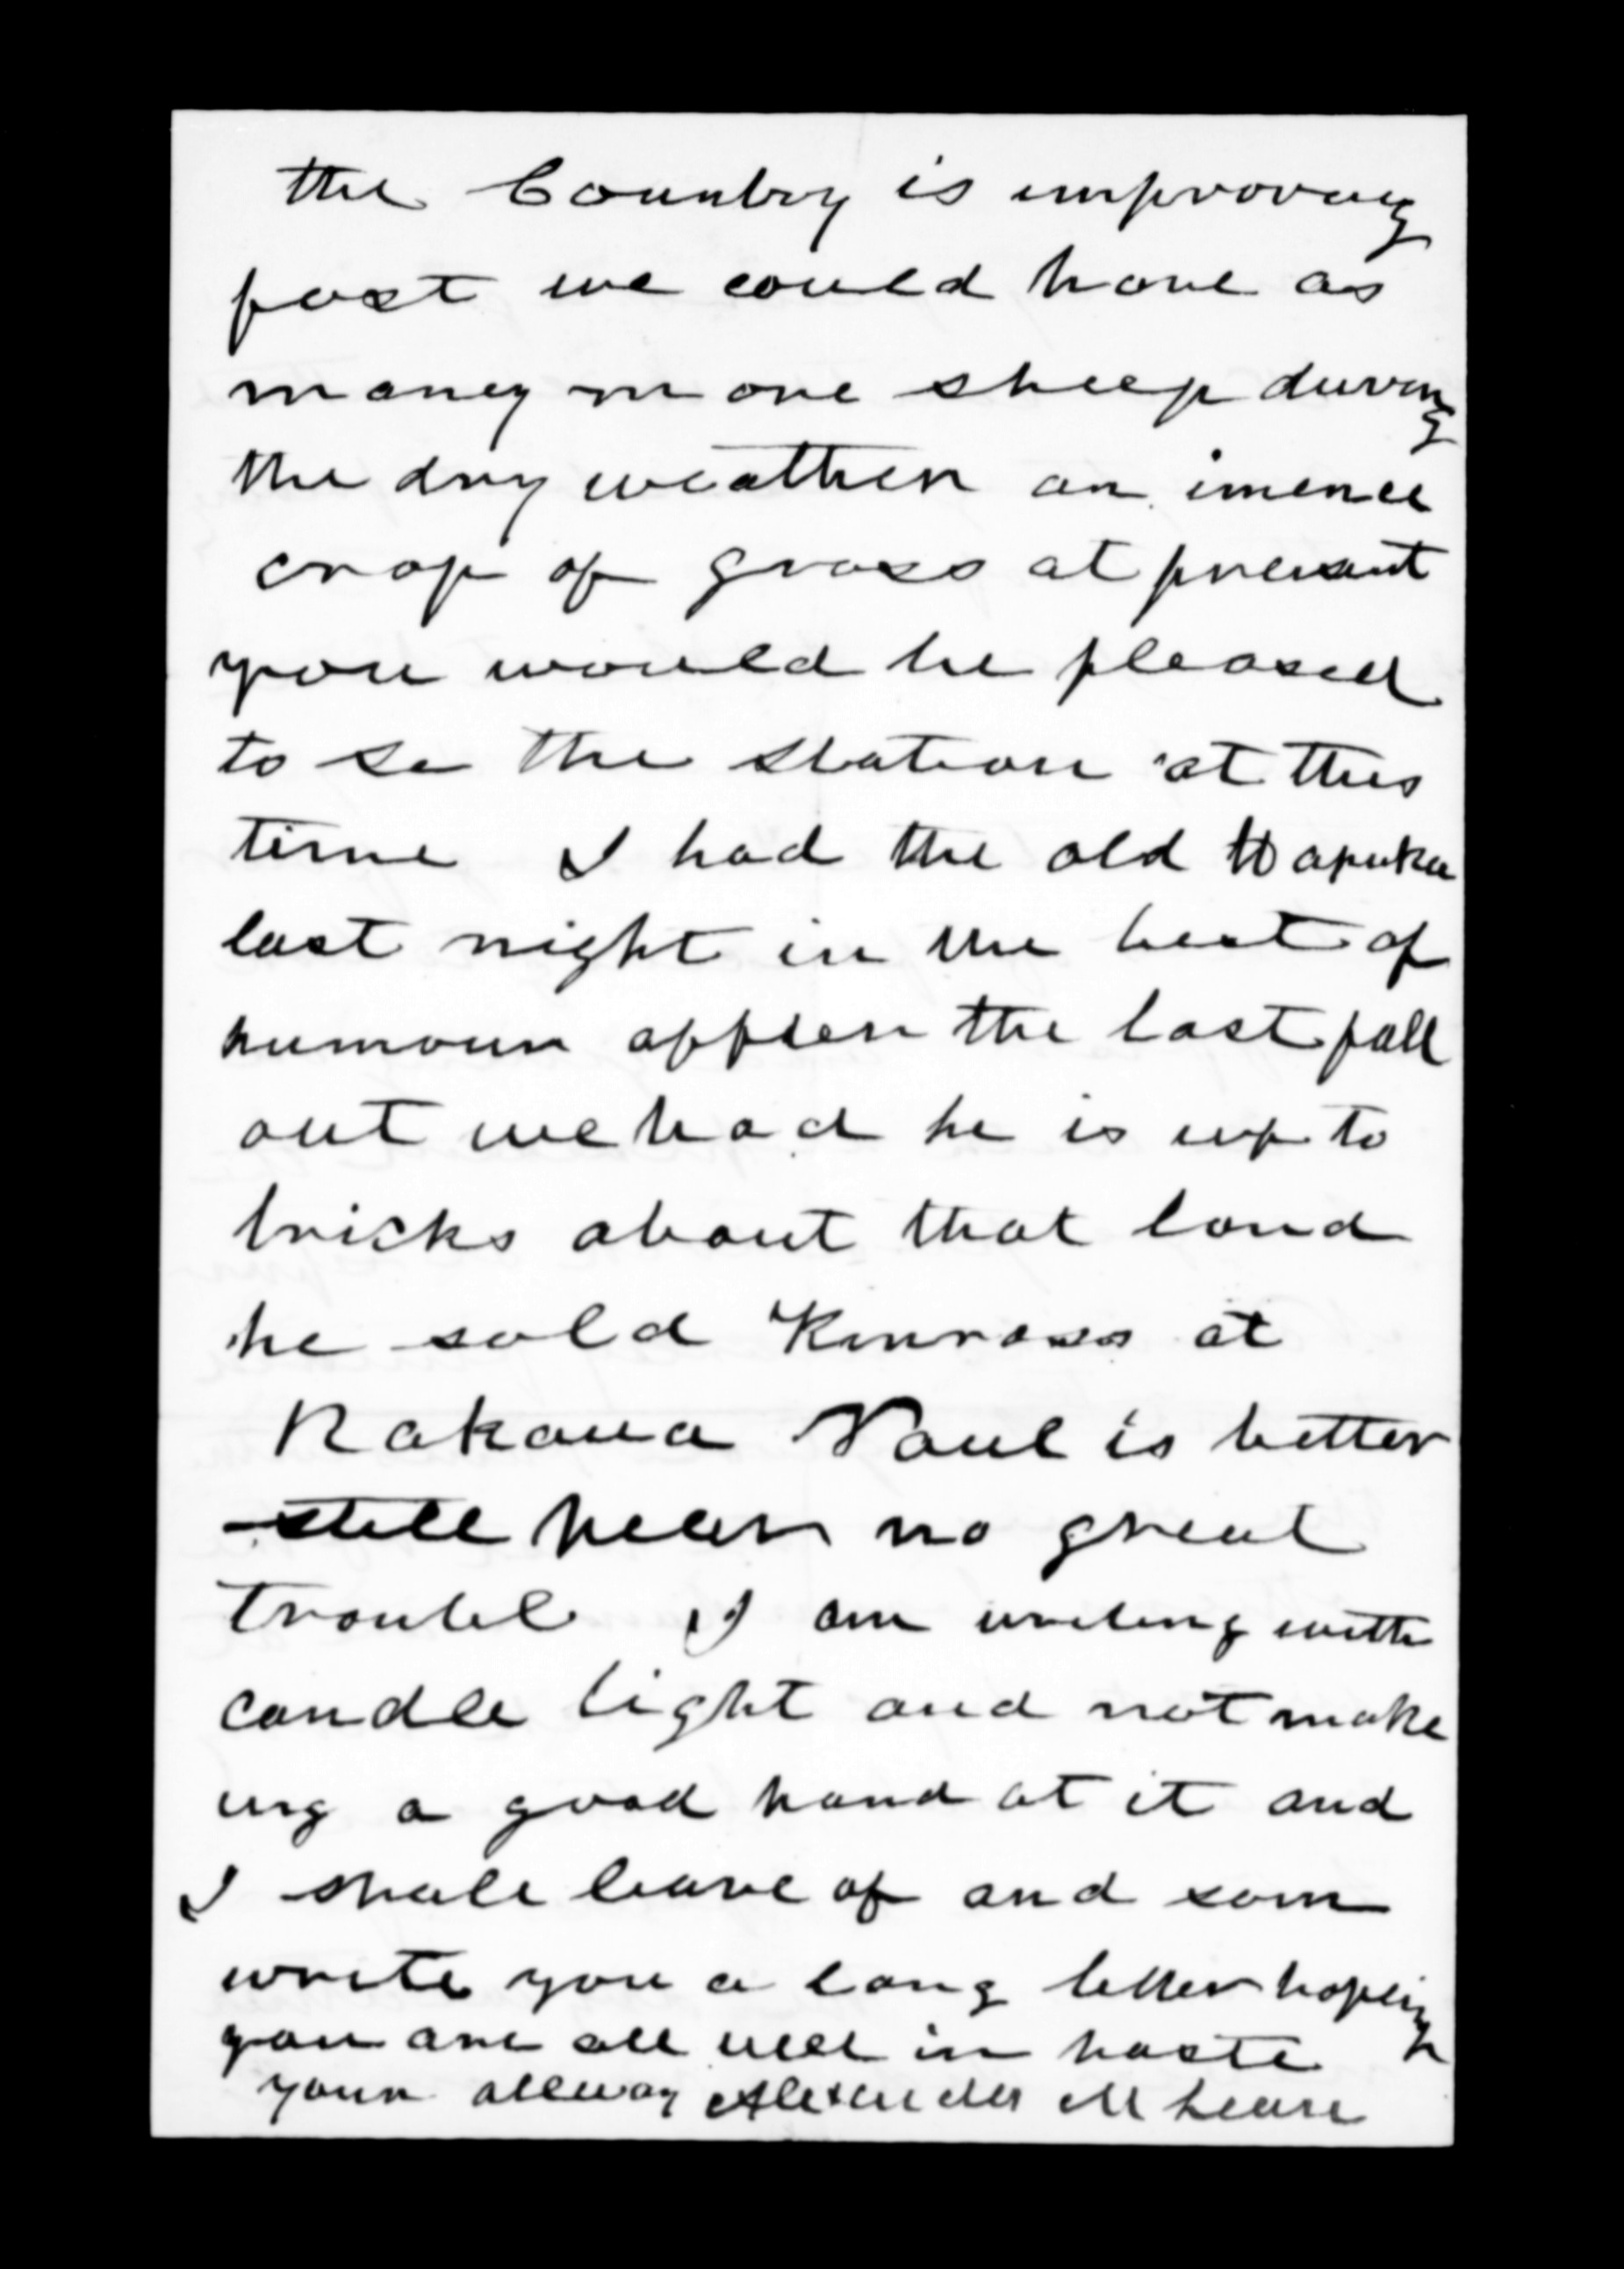 the Country is improving
fast we could have as
maney mor sheep during
the dry weather an imence
crop of grass at present
you would be pleased
to se the station at this
time I had the old Hapuka
last night in the best of
humour affter the last fall
out we had he is up to
tricks about that land
he sold Kinross at
Rakaua Paul is better
still hear no great
troubl I am writing with
candle light and not make
ing a good hand at it and
I shall leave of and soon
write you a long letter hoping
you are all well in haste
your allway Alexander M Lean